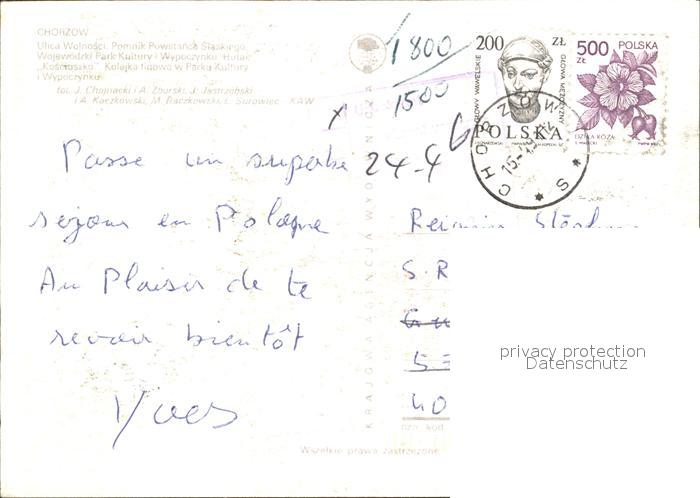 CHORZÓW
Ulica Wolności. Pomnik Powstańca Śląskiego.
Wojewódzki Park Kultury i Wypoczynku. Hutac
„Kościuszko”. Kolejka linowa w Parku Kultury
i Wypoczynku
fot. J. Chojnacki i A. Zborski, J. Jastrzębski
i A. Kaczkowski, M. Raczkowski, L. Surowiec KAW
1800
1500
x
24-4
200 ZŁ
GŁOWY WAWELSKIE
GŁOWA MĘŻCZYZNY
POLSKA
500 ZŁ
POLSKA
DZIKA RÓŻA
CHORZÓW
S
Passe un superbe
séjour en Pologne
Au Plaisir de te
revoir bientôt
Yves
KRAJOWA AGENCJA WYDAWNICZA
S.R
40
kod
Wszelkie prawa zastrzeżone
privacy protection
Datenschutz